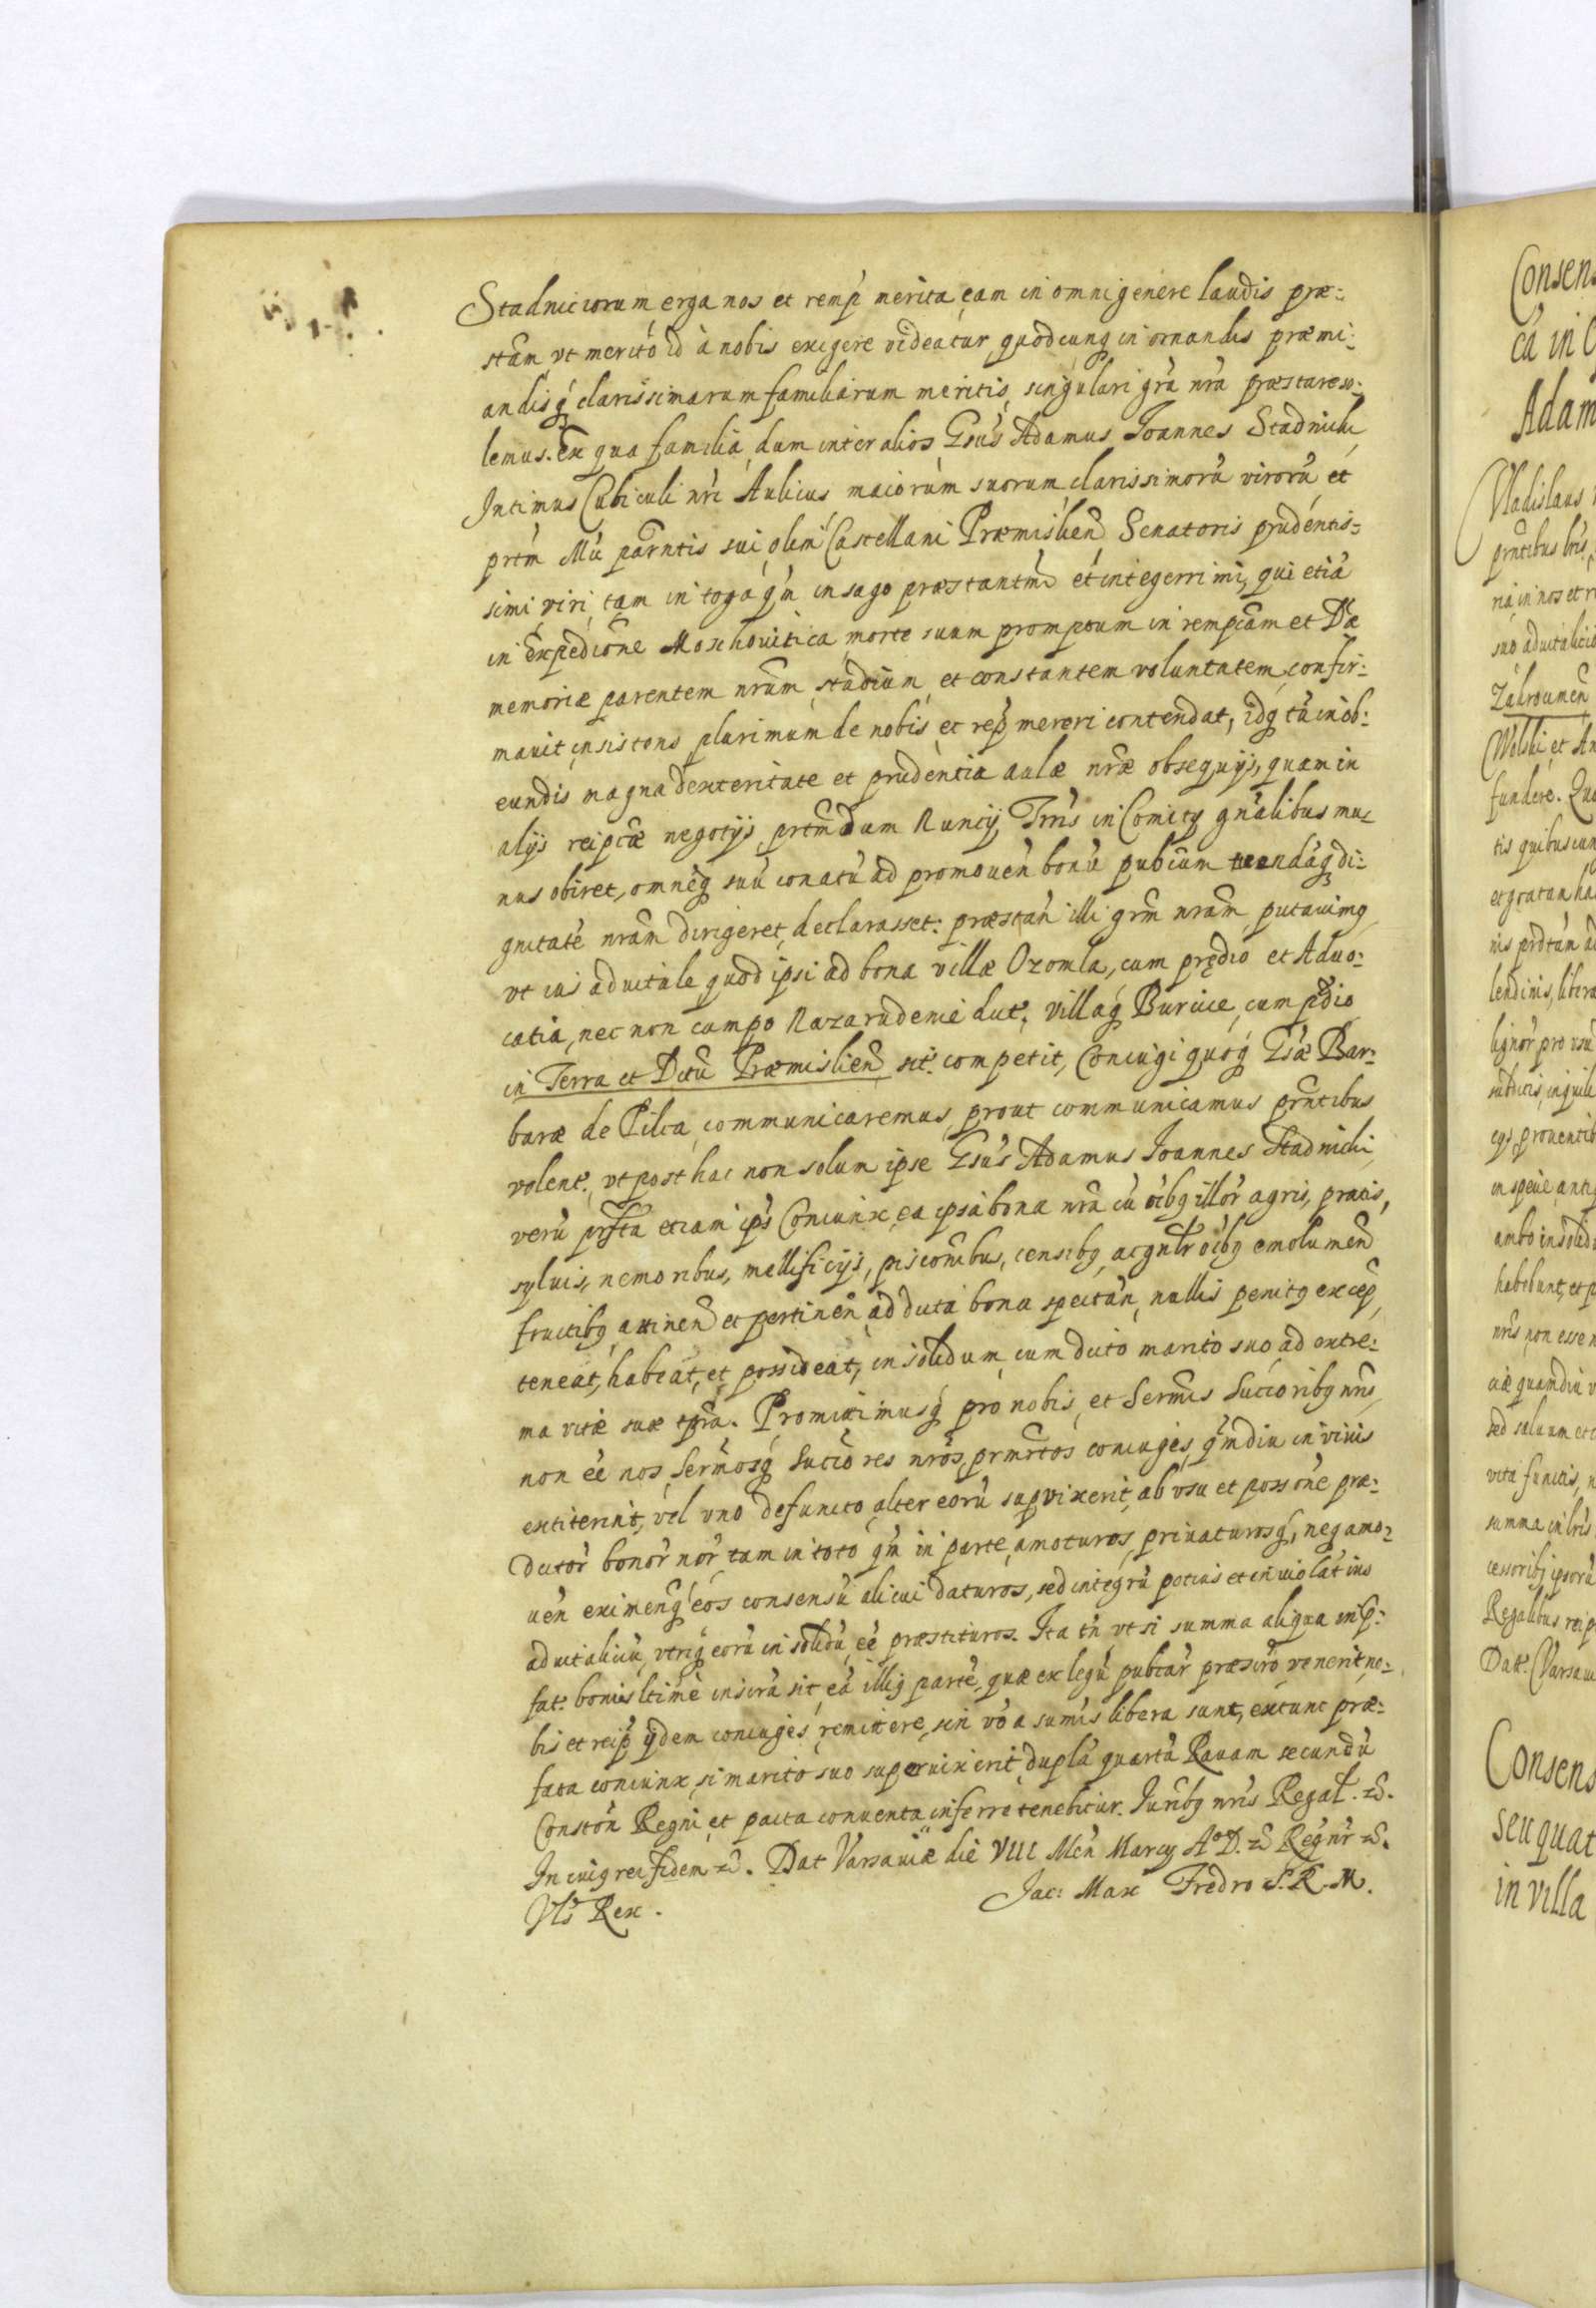 Stadniciorum erga nos et remp merita, eam in omni genere laudis præ:
stam vt merito id à nobis exigere videatur quodcunq in ornandis præmi:
andisq clarissimarum familiarum meritis, singulari gra nra præstare so:
lemus. Ex qua familia, dum inter alios Gsus Adamus Ioannes Stadnicki
Intimus Cubiculi nri Aulicus maiorum suorum clarissimorũ virorũ et
prtm Mci parntis sui olim Castellani Præmislien Senatoris prudentis:
simi viri tam in toga qm in sago præstantmi et integerrimi, qui etiã
in Expedicione Moschouitica morte suum promptum in rempcam et Dæ
memoriæ parentem nrum studium et constantem voluntatem confir:
mauit insistens plurimum de nobis et rep mereri contendat, idq tũ in ob:
eundis magna dexteritate et prudentia aulæ nræ obsequijs, quam in
alijs reipcæ negotijs prtm dum Nuncij Trrs in Comitijs gnalibus mu:
nus obiret, omneq suũ conatũ ad promouen bonũ pubcum tuendaq di:
gnitatē nram dirigeret, declarasset: præstan illi grm nram putauimq
vt ius aduitale quod ipsi ad bona villæ Ozomla, cum prędio et Aduo:
catia, nec non campo Nazarudenie dict, villaq Burcice, cum pdio
in Terra et Dctu Præmislien sit: competit, Coniugi quoq Gsæ Bar:
baræ de Pilca communicaremus, prout communicamus prntibus
volent: vt post hac non solum ipse Gsus Adamus Ioannes Stadnicki
verũ prfta etiam ips Coniunx, ea ipsa bona nra cũ oibq illor agris, pratis,
syluis, nemoribus, mellificijs, pisconibus, censibq, ac gnlr oibq emolumen
fructibq attinen et pertinen ad dicta bona spectan, nullis penitq excep,
teneat, habeat, et possideat, in solidum cum dicto marito suo ad extre:
ma vitæ suæ tpra. Promittimusq pro nobis, et Sermis Succoribq nris,
non eē nos, Sermosq Succores nros, prmrtos coniuges, qmdiu in viuis
extiterint, vel vno defuncto alter eorũ supvixerit, ab vsu et possone præ:
dictor bonor nor tam in toto qm in parte, amoturos, priuaturosq, neq amo:
uen eximenq eos consensũ alicui daturos, sed integrũ potius et inuiolat ius
aduitalitiũ vtriq eorũ in solidũ eē præstituros. Ita tn vt si summa aliqua in p:
fat: bonis ltime inscra sit, eã illiq partē, quæ ex legũ pubcar præscro venerit, no:
bis et reip ijdem coniuges remittere, sin vo a sumis libera sunt, extunc præ:
fata coniunx, si marito suo superuixerit, duplã quartã Rauam secundũ
Conston Regni et pacta conuenta inferre tenebitur. Iuribq nris Regal. &.
In cuiq rei fidem &. Dat Varsauiæ die VIII Men Marcij Ao D. & Regnr &.
Vls Rex.
Jac: Max Fredro S.R.M.
Consens
ca in
Adam
Vladislaus
prntibus lris
ria in nos et r
suo aduitalicio
Zabroumen
Wolski et An
fundere. Quo
tis quibuscun
et gratam ha
nis prdtum ad
lendinis, libera
lignor pro vsu
subditis, inquili
eqs prouentib
in specie anti
ambo in solidu
habebunt, et p
nris non esse n
ciæ quamdiu v
sed saluum et
vita functis, n
summa in lris
cessoribq ipsoru
Regalibus reip
Dat: Varsaui
Consens
seu quat
in villa